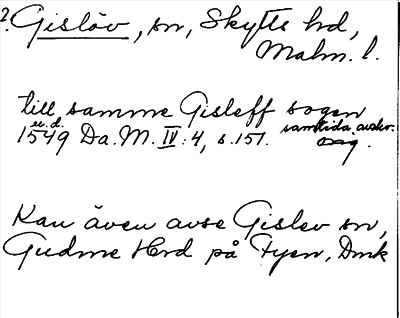 2. Gislöv, sn, Skytts hd,
Malm. l.
till samme Gisleff sogen
u.d.
1549 Da. M. IV:4, s. 151. samtida avskr.
Kan även avse Gislev sn,
Gudme Hrd på Fyen, Dmk